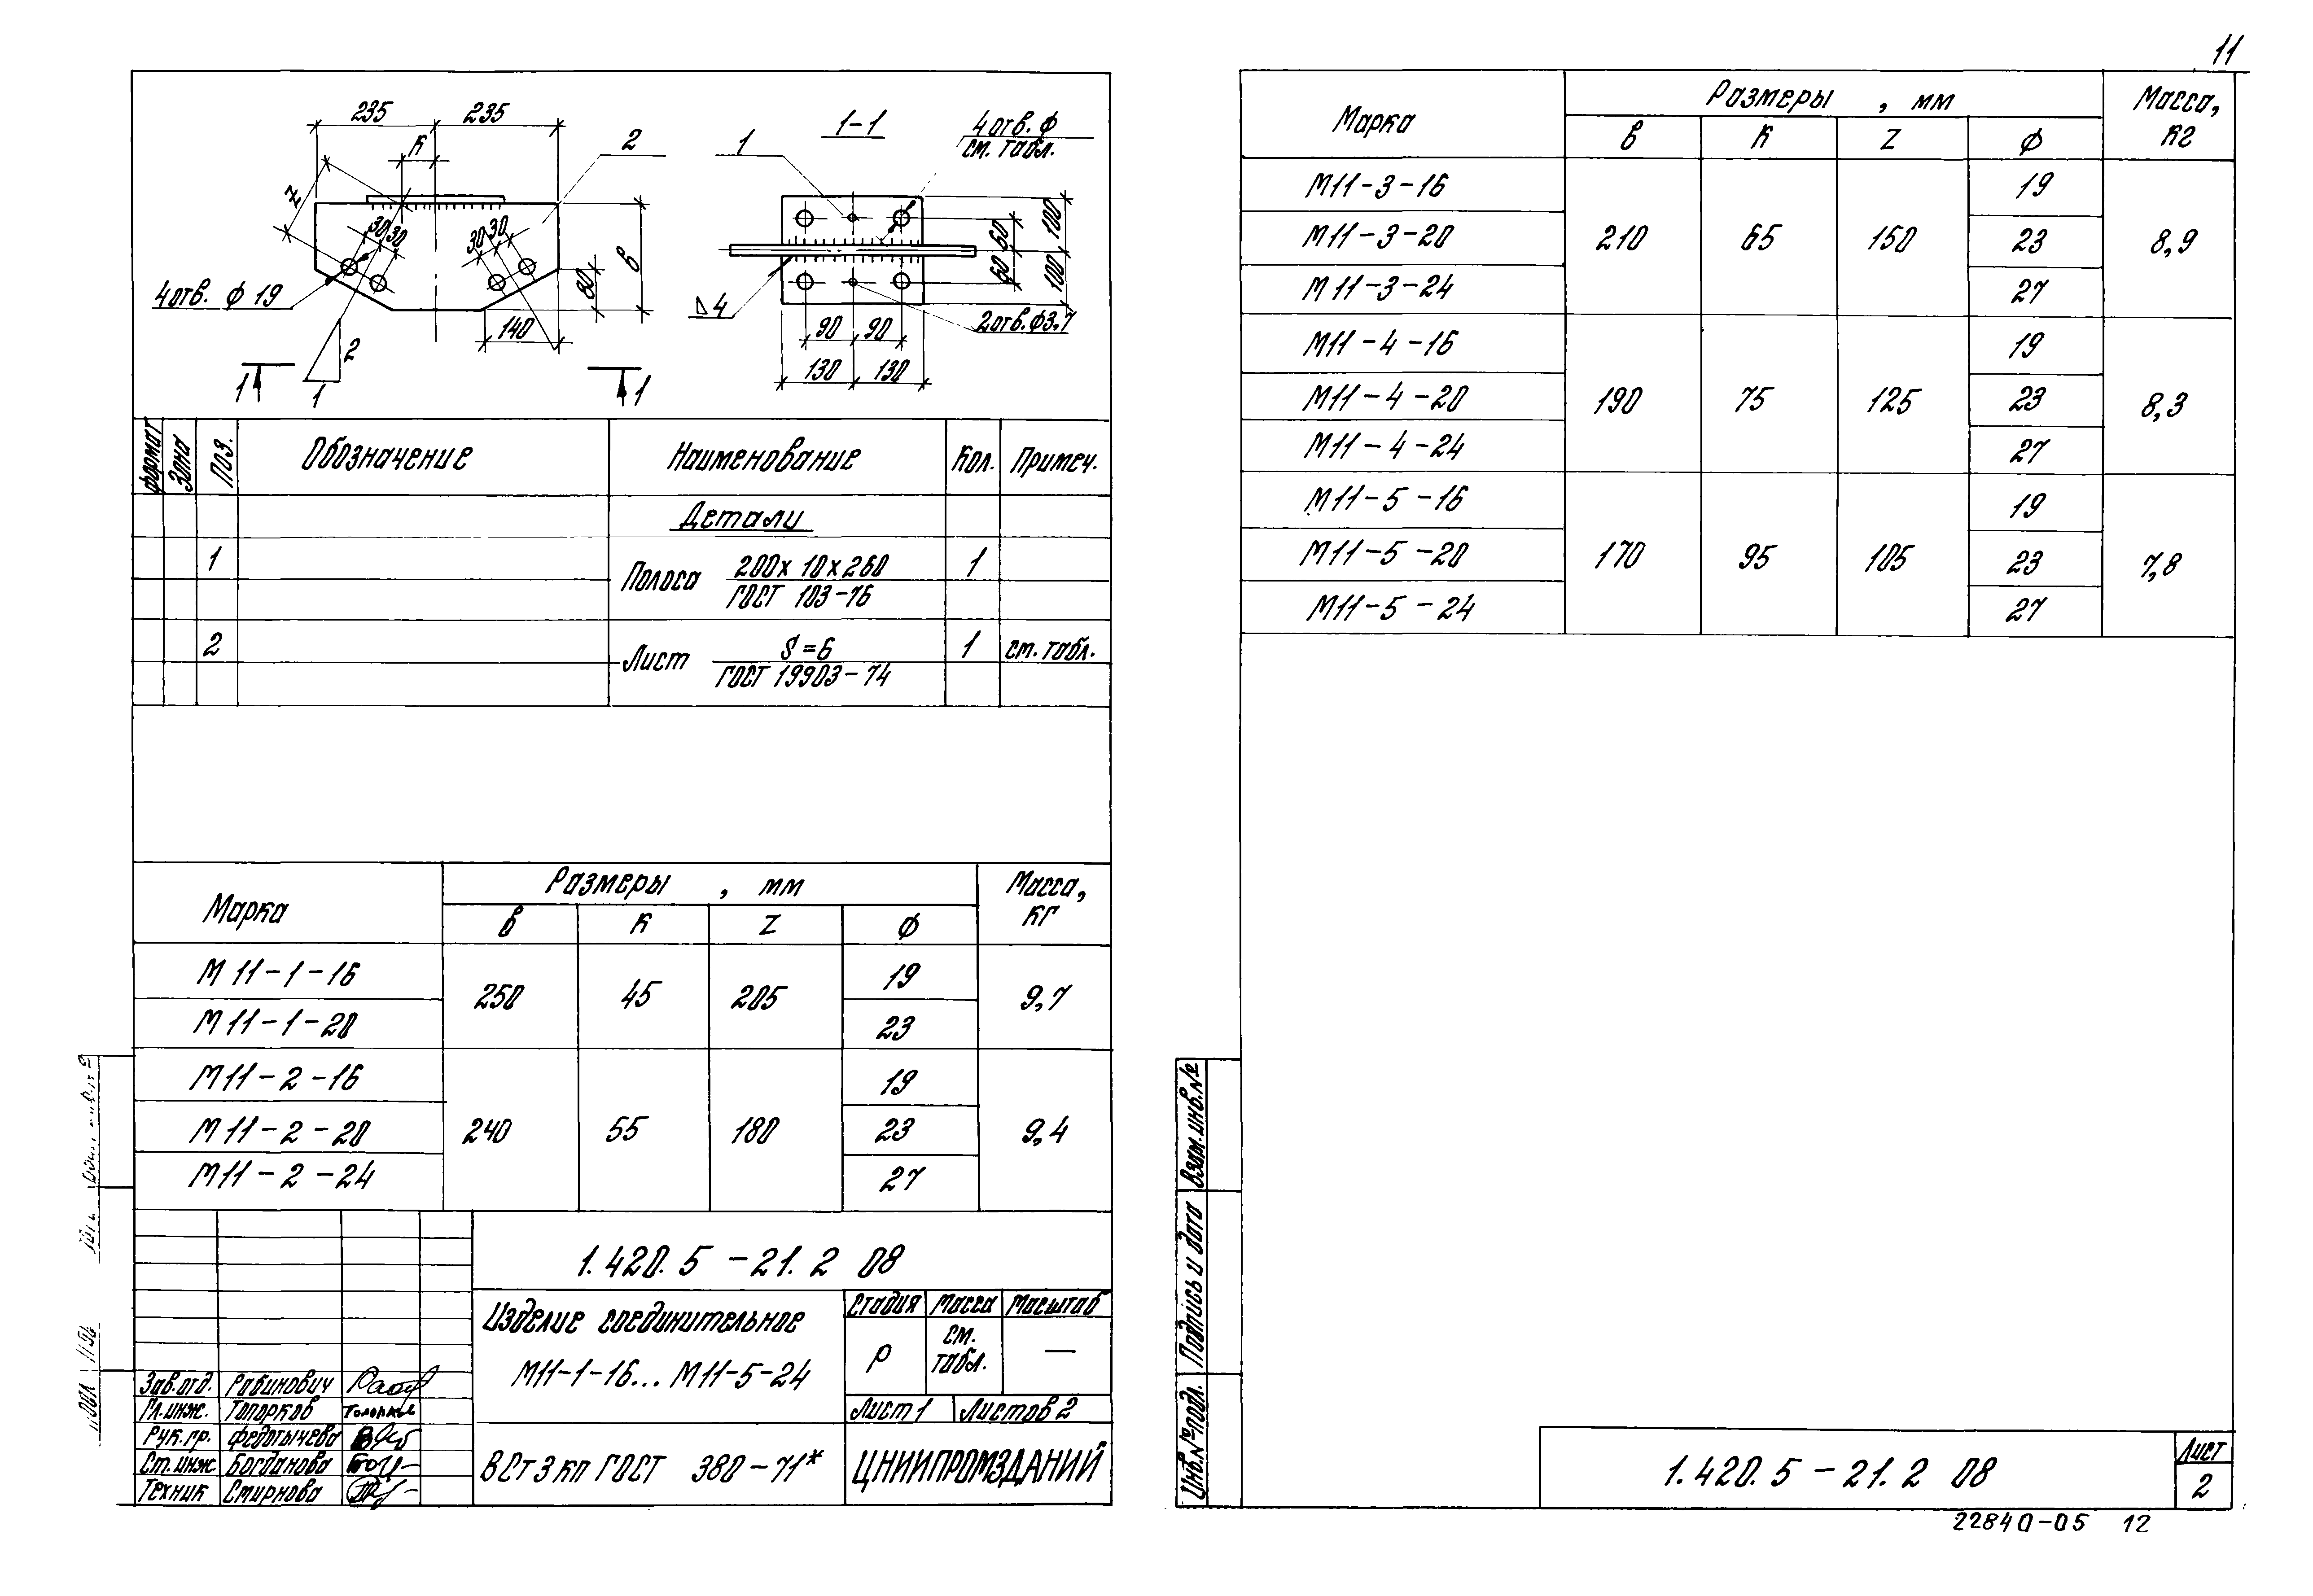 11
235 235
к
z
30 30
30 30
2
в
80
140
4 отв. ф 19
2
1
1 1
1-1
1
4 отв. ф
см. табл.
100
60
60
100
Δ4
2 отв. ф3,7
90 90
130 130
формат Зона Поз. Обозначение Наименование Кол. Примеч.
Детали
1 Полоса 200х 10 х 260 1
ГОСТ 103-76
2 Лист S=6 1 см. табл.
ГОСТ 19903-74
Марка Размеры , мм Масса, кг
в к z ф
М 11-1-16 250 45 205 19 9,7
М 11-1-20 23
М 11-2-16 19
М 11-2-20 240 55 180 23 9,4
М 11-2-24 27
1.420.5-21.2 08
Изделие соединительное
М11-1-16... М11-5-24
Стадия Масса Масштаб
Р см. табл. —
Лист 1 Листов 2
В Ст 3 кп ГОСТ 380-71*
ЦНИИПРОМЗДАНИЙ
Зав.отд. Рабинович
Гл.инж. Топорков
Рук.гр. Федотычева
Ст.инж Богданова
Техник Смирнова
Марка Размеры , мм Масса, кг
в к z ф
М11-3-16 19
М11-3-20 210 65 150 23 8,9
М11-3-24 27
М11-4-16 19
М11-4-20 190 75 125 23 8,3
М11-4-24 27
М11-5-16 19
М11-5-20 170 95 105 23 7,8
М11-5-24 27
Взам.инв.№
Подпись и дата
Инв.№подл.
1.420.5-21.2 08
Лист
2
22840-05 12